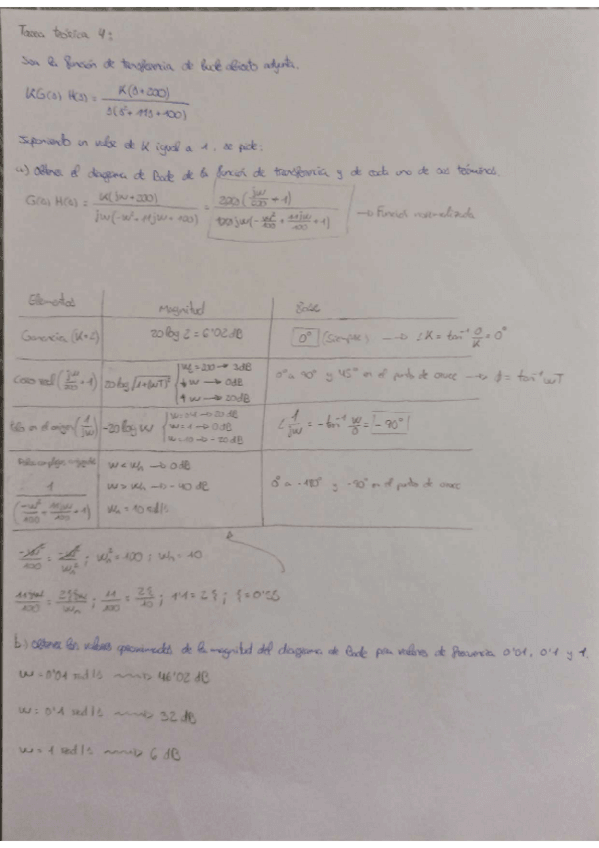 Tarea teórica 4:
Sea la función de transferencia de bucle abierto adjunta.
KG(s) H(s) = K(s+200) / s(s²+11s+100)
Suponiendo un valor de K igual a 1, se pide:
a) Obtener el diagrama de Bode de la función de transferencia y de cada uno de sus términos.
G(s) H(s) = K(jw+200) / jw(-w²+11jw+100) = 200(jw/200 + 1) / 100jw(-w²/100 + 11jw/100 + 1) → Función normalizada
Elementos Magnitud Fase
Ganancia (K=2) 20 log 2 = 6'02 dB 0° (Siempre) → ∠K = tan⁻¹ 0/K = 0°
Cero real (jw/200 + 1) 20 log √1+(wT)² w = 200 → 3dB
↓ w → 0dB
↑ w → 20dB
0° a 90° y 45° en el punto de cruce → φ = tan⁻¹ wT
Polo en el origen (1/jw) -20 log w w = 0'1 → 20 dB
w = 1 → 0 dB
w = 10 → -20 dB
∠ 1/jw = -tan⁻¹ w/0 = -90°
Polos complejos
1 / (-w²/100 + 11jw/100 + 1)
w < wn → 0 dB
w > wn → -40 dB
wn = 10 rad/s
0° a -180° y -90° en el punto de cruce
-w²/100 = -w²/wn² ; wn² = 100 ; wn = 10
11jw/100 = 2ξjw/wn ; 11/100 = 2ξ/10 ; 1'1 = 2ξ ; ξ = 0'55
b) Obtener los valores aproximados de la magnitud del diagrama de Bode para valores de frecuencia 0'01, 0'1 y 1.
w = 0'01 rad/s → 46'02 dB
w = 0'1 rad/s → 32 dB
w = 1 rad/s → 6 dB